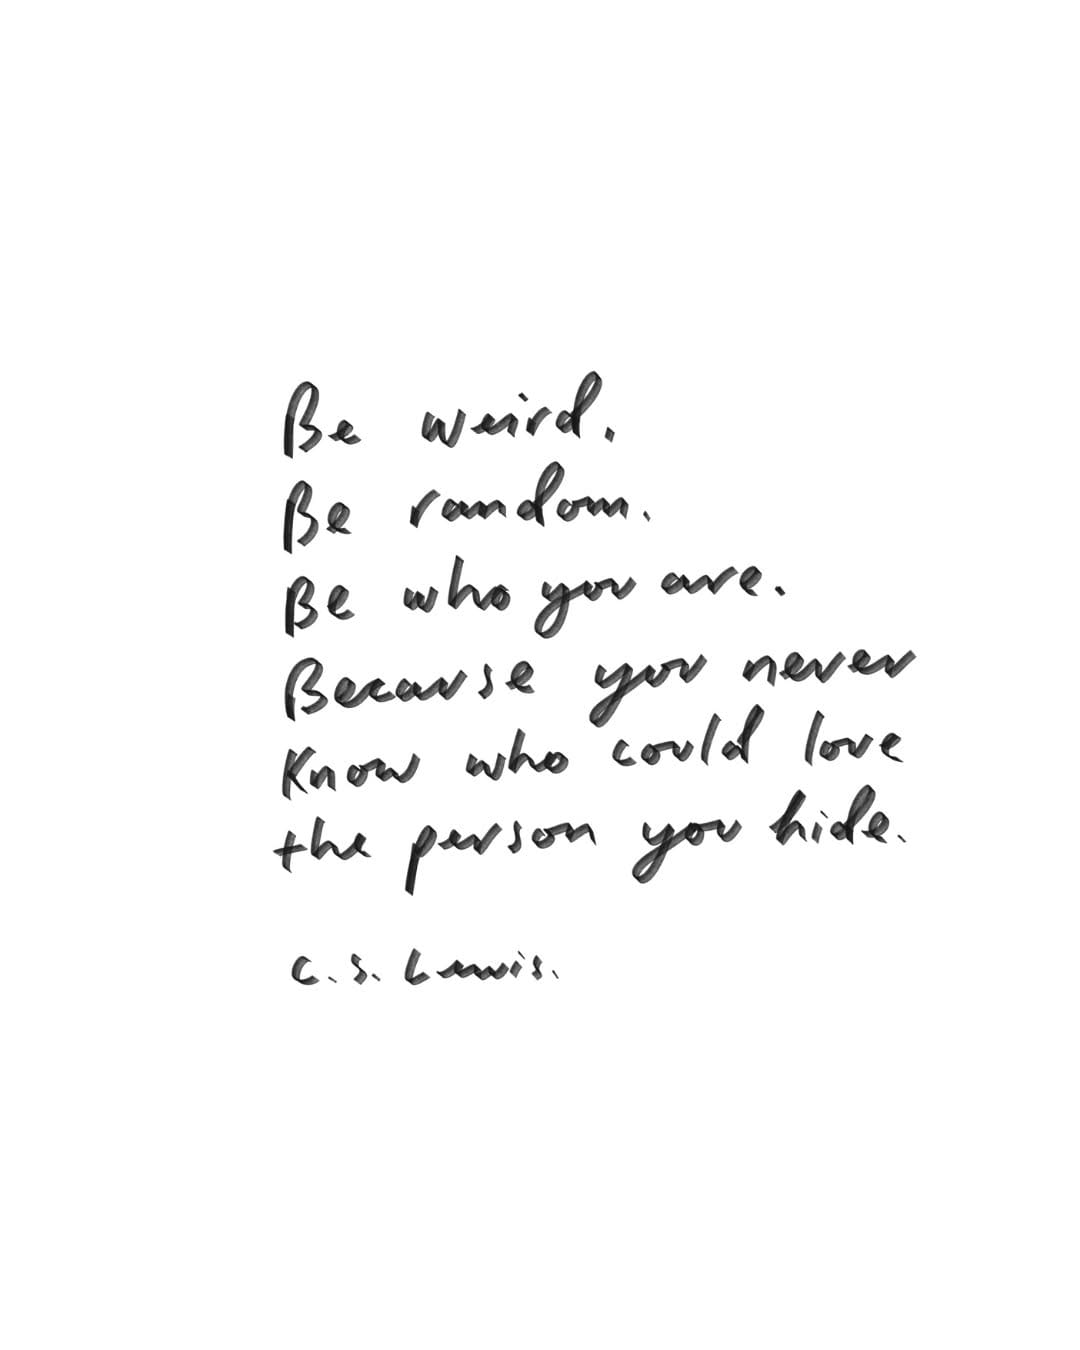 Be weird.
Be random.
Be who you are.
Because you never
know who could love
the person you hide.
C.S. Lewis.